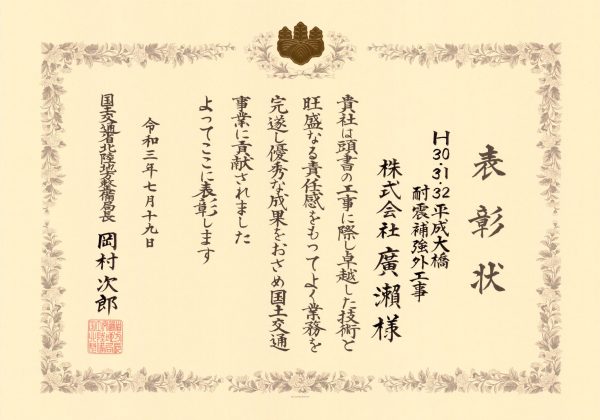 表彰状
H30・31・32平成大橋
耐震補強外工事
株式会社 廣瀨 様
貴社は頭書の工事に際し卓越した技術と
旺盛なる責任感をもってよく業務を
完遂し優秀な成果をおさめ国土交通
事業に貢献されました
よってここに表彰します
令和三年七月十九日
国土交通省北陸地方整備局長 岡村次郎